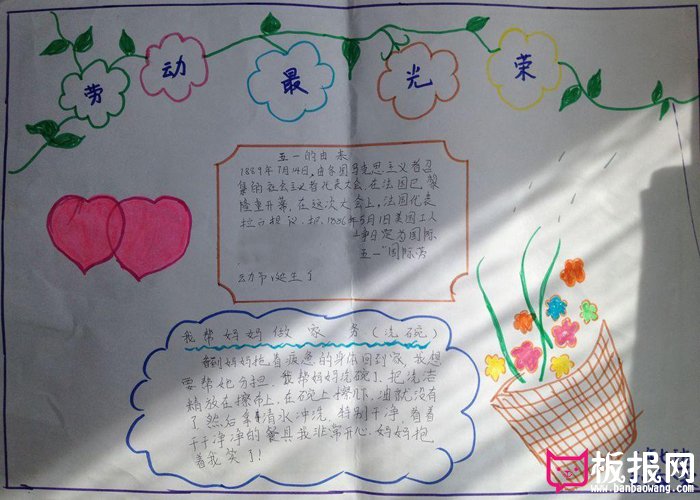 劳动最光荣
五一的由来
1889年7月14日,由各国马克思主义者召
集的社会主义者代表大会,在法国巴黎
隆重开幕,在这次大会上,法国代表
拉万提议,把1886年5月1日美国工人
争日定为国际
五一"国际劳
动节诞生了
我帮妈妈做家务(洗碗)
看到妈妈拖着疲惫的身体回到家,我想
要帮她分担,我帮妈妈洗碗了.把洗洁
精放在擦布上,在碗上擦几下,油就没有
了然后拿清水冲洗,特别干净,看着
干干净净的餐具我非常开心.妈妈抱
着我笑了!
板报网
www.banbaowang.com